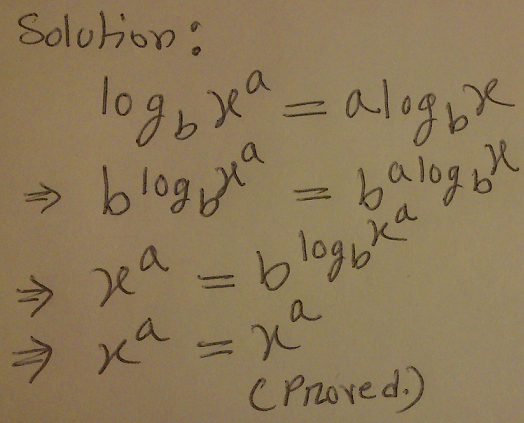 Solution:
log_b x^a = a log_b x
⇒ b^{log_b x^a} = b^{a log_b x}
⇒ x^a = b^{log_b x^a}
⇒ x^a = x^a
(Proved.)